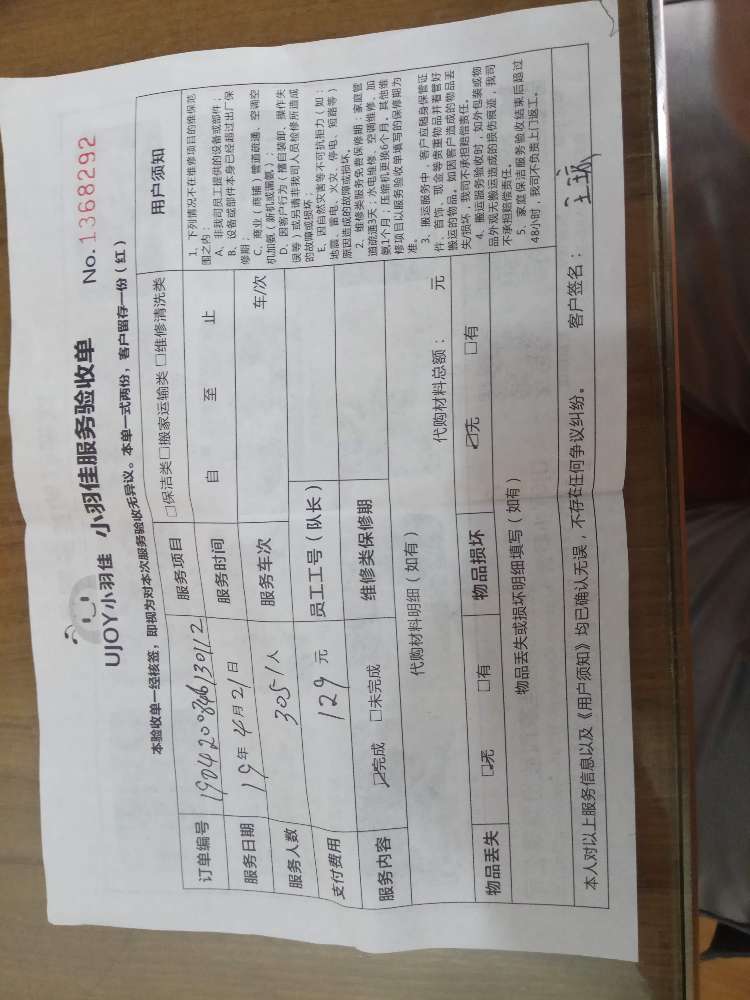 UJOY小羽佳 小羽佳服务验收单 No.1368292
本验收单一经核签，即视为对本次服务验收无异议。本单一式两份，客户留存一份（红）
订单编号 服务项目 □保洁类□搬家运输类 □维修清洗类
服务日期 19年4月21日 服务时间 自 至 止
服务人数 人 服务车次 车/次
支付费用 129 元 员工工号（队长）
服务内容 ☑完成 □未完成 维修类保修期
代购材料明细（如有） 代购材料总额： 元
物品丢失 ☑无 □有 物品损坏 ☑无 □有
物品丢失或损坏明细填写（如有）
用户须知
1、下列情况不在维修项目的维保范
围之内：
A、非我司员工提供的设备或部件；
B、设备或部件本身已经超过出厂保
修期；
C、商业（商铺）管道疏通、空调空
机加氨（新机或漏氨）；
D、因客户行为（擅自装卸、操作失
误等）或另请非我司人员检修所造成
的故障或损坏；
E、因自然灾害等不可抗拒力（如：
地震、雷电、火灾、停电、短路等）
原因造成的故障或损坏。
2、维修类服务免费保修期：家庭管
道疏通3天；水电维修、空调维修、加
氨1个月；压缩机更换6个月。其他维
修项目以服务验收单填写的保修期为
准。
3、搬运服务中，客户应随身保管证
件、首饰、现金等贵重物品并看管好
搬运的物品。如因客户造成的物品丢
失/损坏，我司不承担赔偿责任。
4、搬运服务验收时，如外包装或物
品外观无搬运造成的损伤痕迹，我司
不承担赔偿责任。
5、家庭保洁服务验收结束后超过
48小时，我司不负责上门返工。
本人对以上服务信息以及《用户须知》均已确认无误，不存在任何争议纠纷。 客户签名：